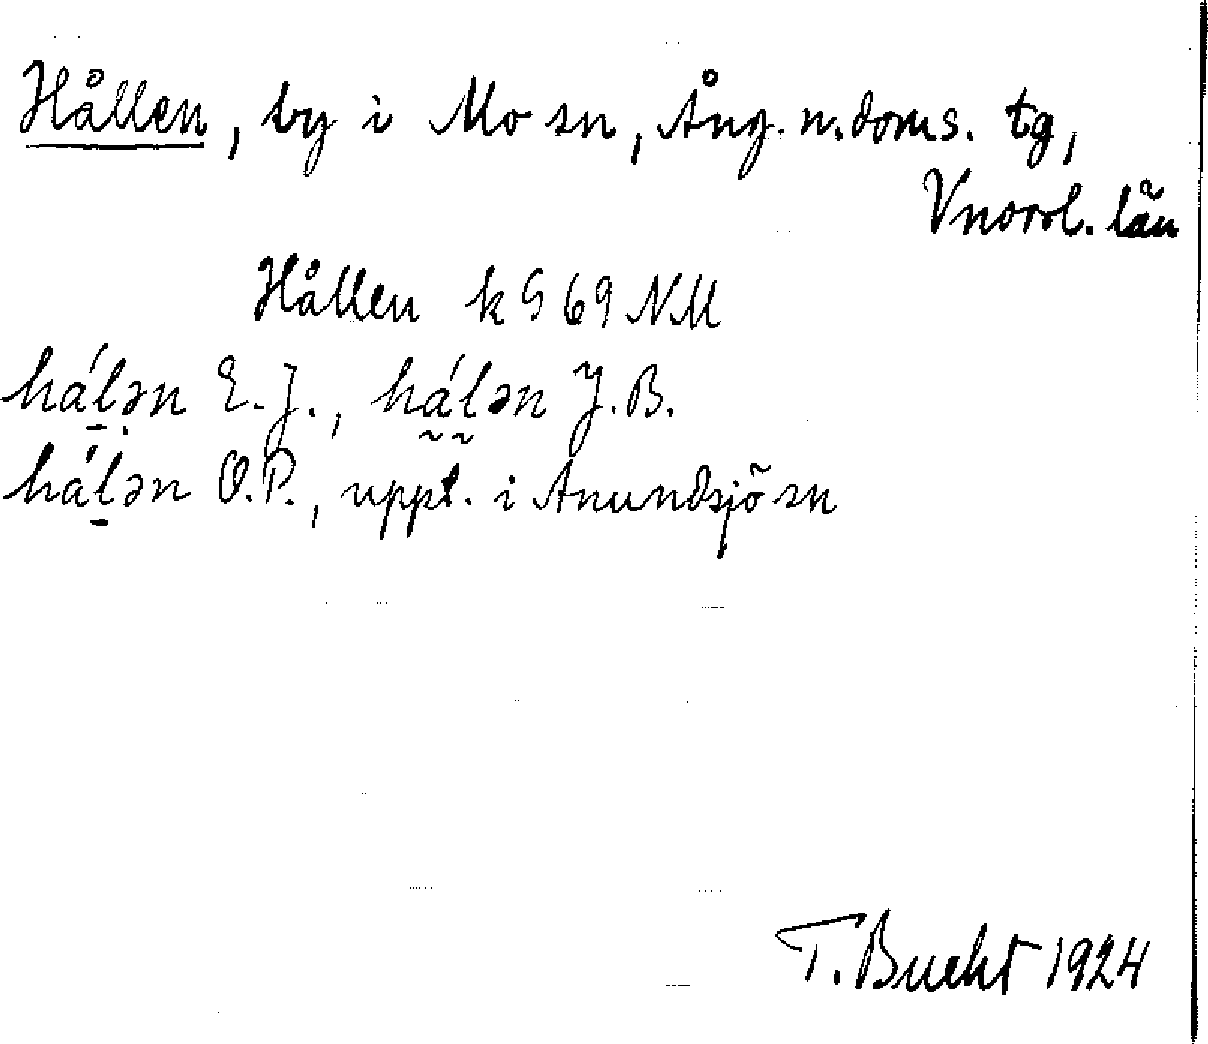 Hållen, by i Mo sn, Ång. n. doms. tg,
Vnorrl. län
Hållen k G 69 NM
há̱lə̣n E. J., há̰l̰ən J. B.
háḻən O. P., uppt. i Anundsjö sn
T. Bucht 1924